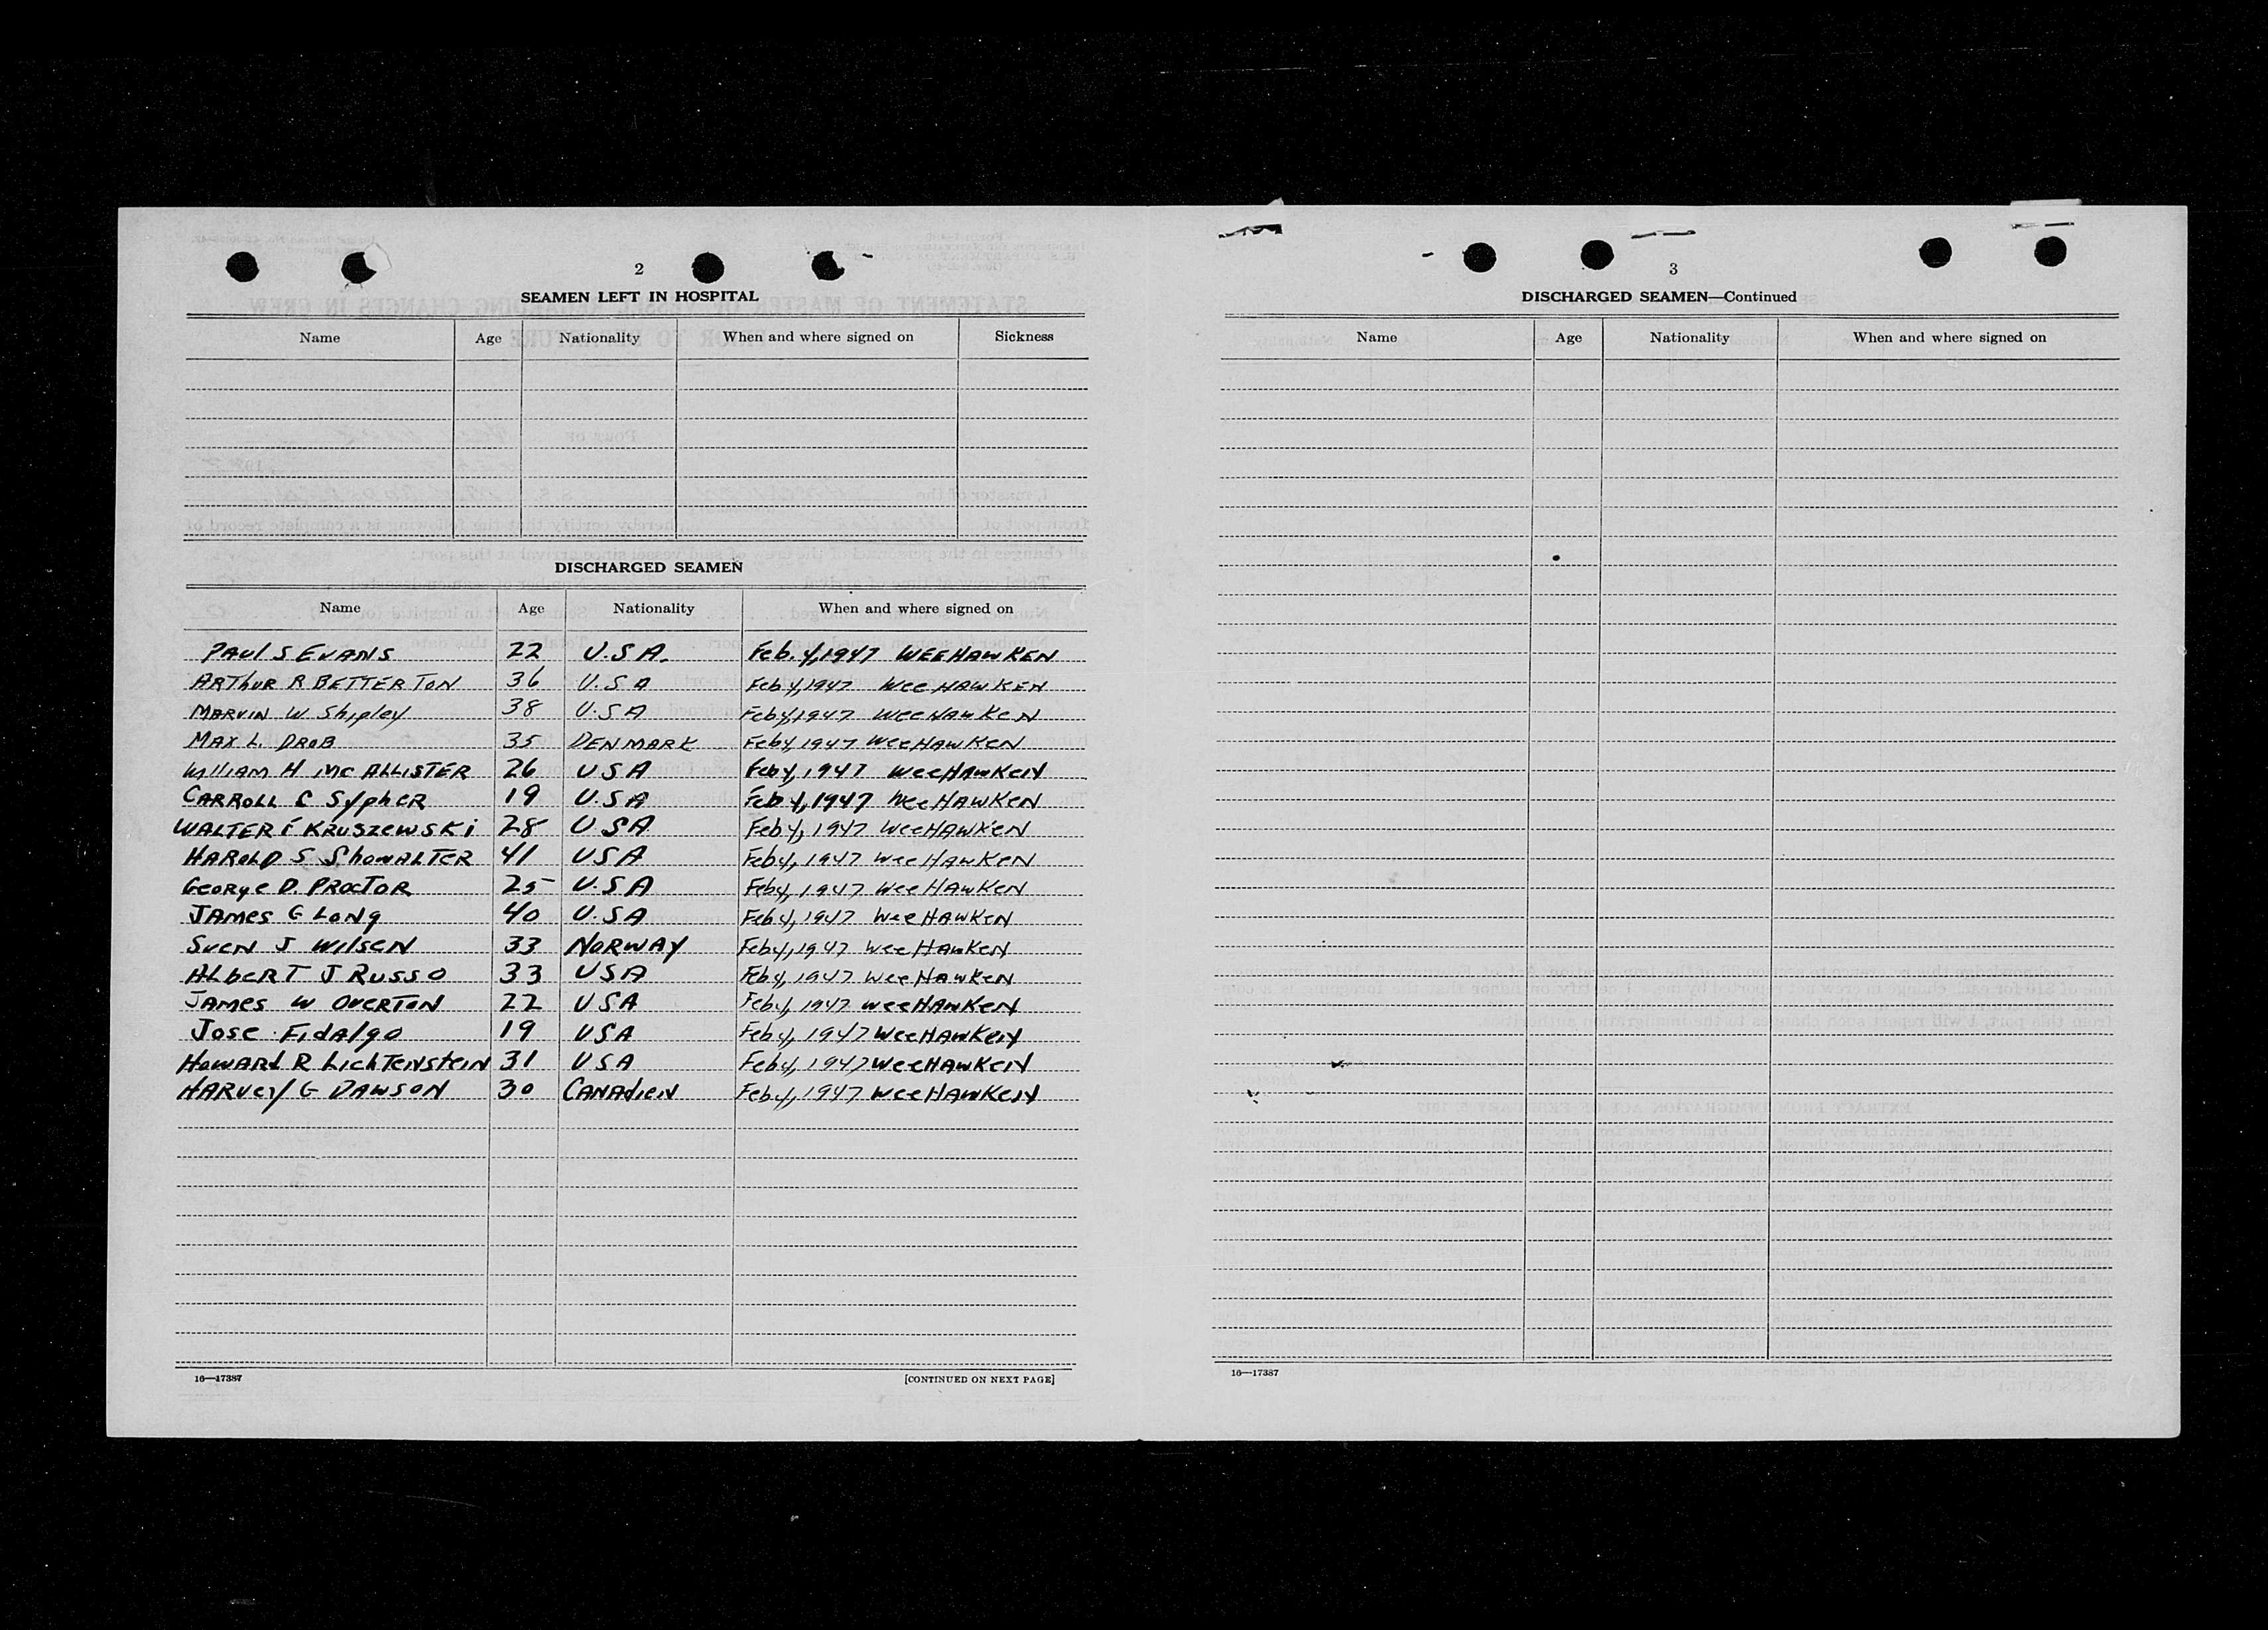 2
SEAMEN LEFT IN HOSPITAL
Name Age Nationality When and where signed on Sickness
DISCHARGED SEAMEN
Name Age Nationality When and where signed on
PAUL S EVANS 22 U.S.A. Feb. 4, 1947 WEEHAWKEN
ARThUR R BETTERTON 36 U.S A Feb 4, 1947 WeeHAWKEN
MARVIN W Shipley 38 U.S A Feb 4, 1947 WeeHAWKeN
MAX L. DROB 35 DENMARK Feb 4 1947 WeeHAWKeN
William H McALLISTER 26 U S A Feb 4, 1947 WeeHAWKeN
CARROLL C SyphER 19 U.S A Feb 4, 1947 WeeHAWKeN
WALTER F KRUSZewSKi 28 U S A Feb 4, 1947 WeeHAWKeN
HAROLD S ShowALTER 41 U S A Feb 4, 1947 WeeHAWKeN
GeoRge D. PROCTOR 25 U.S A Feb 4, 1947 WeeHAWKeN
JAMes G LONg 40 U.S A Feb 4, 1947 WeeHAWKeN
SveN J WilseN 33 NORWAY Feb 4, 1947 WeeHAWKeN
ALbeRT J RUSSO 33 U S A Feb 4, 1947 WeeHAWKeN
JAMes W OVeRTON 22 U S A Feb 4, 1947 WeeHAWKeN
Jose FidAlgo 19 U S A Feb 4, 1947 WeeHAWKeN
HowARd R LichTeNsteiN 31 U S A Feb 4, 1947 WeeHAWKeN
HARVey G DAWSON 30 CANAdieN Feb 4, 1947 WeeHAWKeN
16—17387 [CONTINUED ON NEXT PAGE]
3
DISCHARGED SEAMEN—Continued
Name Age Nationality When and where signed on
16—17387